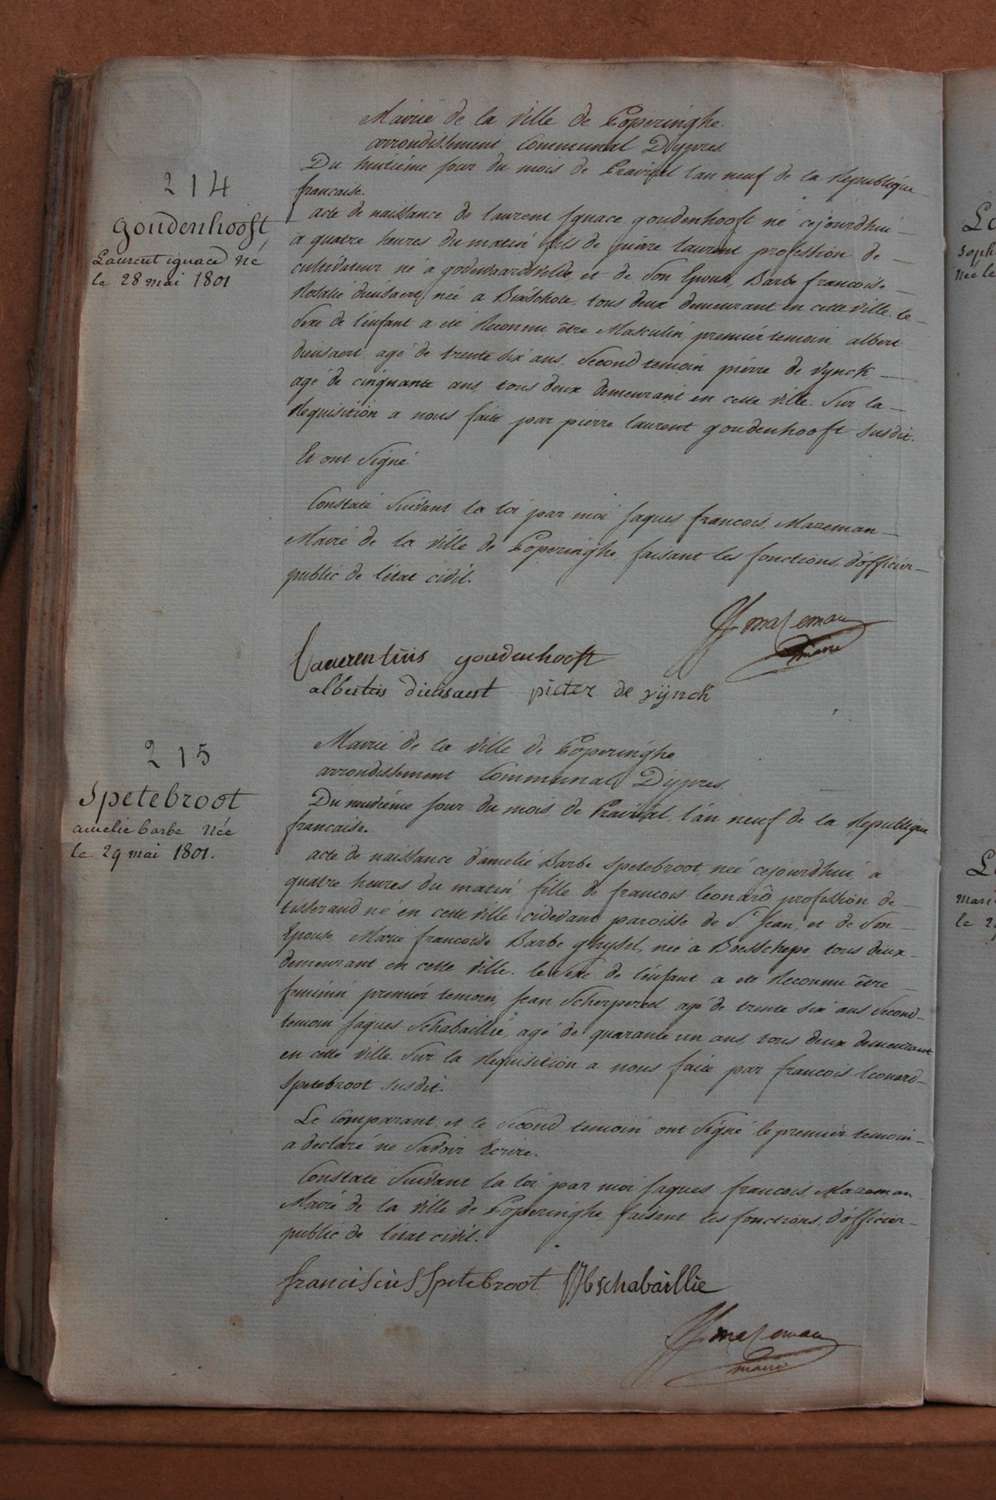 Mairie de la ville de Poperinghe
arrondissement Communal D'ypres
214
Du huitiéme jour du mois de Prairial l'an neuf de la Republique
francaise.
goudenhooft,
Laurent ignace né
le 28 mai 1801
acte de naissance de laurent Ignace goudenhooft né cejourdhui
a quatre heures du matin fils de pierre laurent profession de
cultivateur né a godewaersvelde et de son Epouse Barbe francoise
Rosalie dieusaert née a Bixschote tous deux demeurant en cette ville. le
sexe de l'enfant a eté Reconnu être Masculin premier temoin albert
dieusaert agé de trente six ans second temoin pierre de vynck
agé de cinquante ans, tous deux demeurant en cette ville. Sur la
Requisition a nous faite par pierre laurent goudenhooft susdit.
Et ont signé
Constaté suivant la loi par moi jaques francois Mazeman
Maire de la ville de Poperinghe faisant les fonctions d'officier
public de l'etat civil.
JF mazeman
maire
Laurentius goudenhooft
albertus dieusaert pieter de vijnck
215
Mairie de la ville de Poperinghe
arrondissement Communal D'ypres
Spetebroot
amelie barbe née
le 29 mai 1801.
Du jour du mois de Prairial l'an neuf de la Republique
francaise.
acte de naissance d'amelie Barbe Spetebroot neé cejourdhui a
quatre heures du matin fille de francois leonard profession de
tisserand né en cette ville cidevant paroisse de St Jean, et de son
Epouse Marie francoise Barbe ghysel, née a Boesschepe tous deux
demeurant en cette ville. le sexe de l'enfant a eté Reconnu être
feminin premier temoin Jean Scherpereel agé de trente six ans second
temoin jaques Schabaillie agé de quarante un ans tous deux demeurant
en cette ville Sur la Requisition a nous faite par francois leonard
Spetebroot susdit.
Le Comparant et le second temoin ont signé le premier temoin
a declaré ne savoir ecrire.
Constaté suivant la loi par moi jaques francois Mazeman
Maire de la ville de Poperinghe faisant les fonctions d'officier
public de l'etat civil.
franciscus Spetebroot schabaillie
JF mazeman
maire